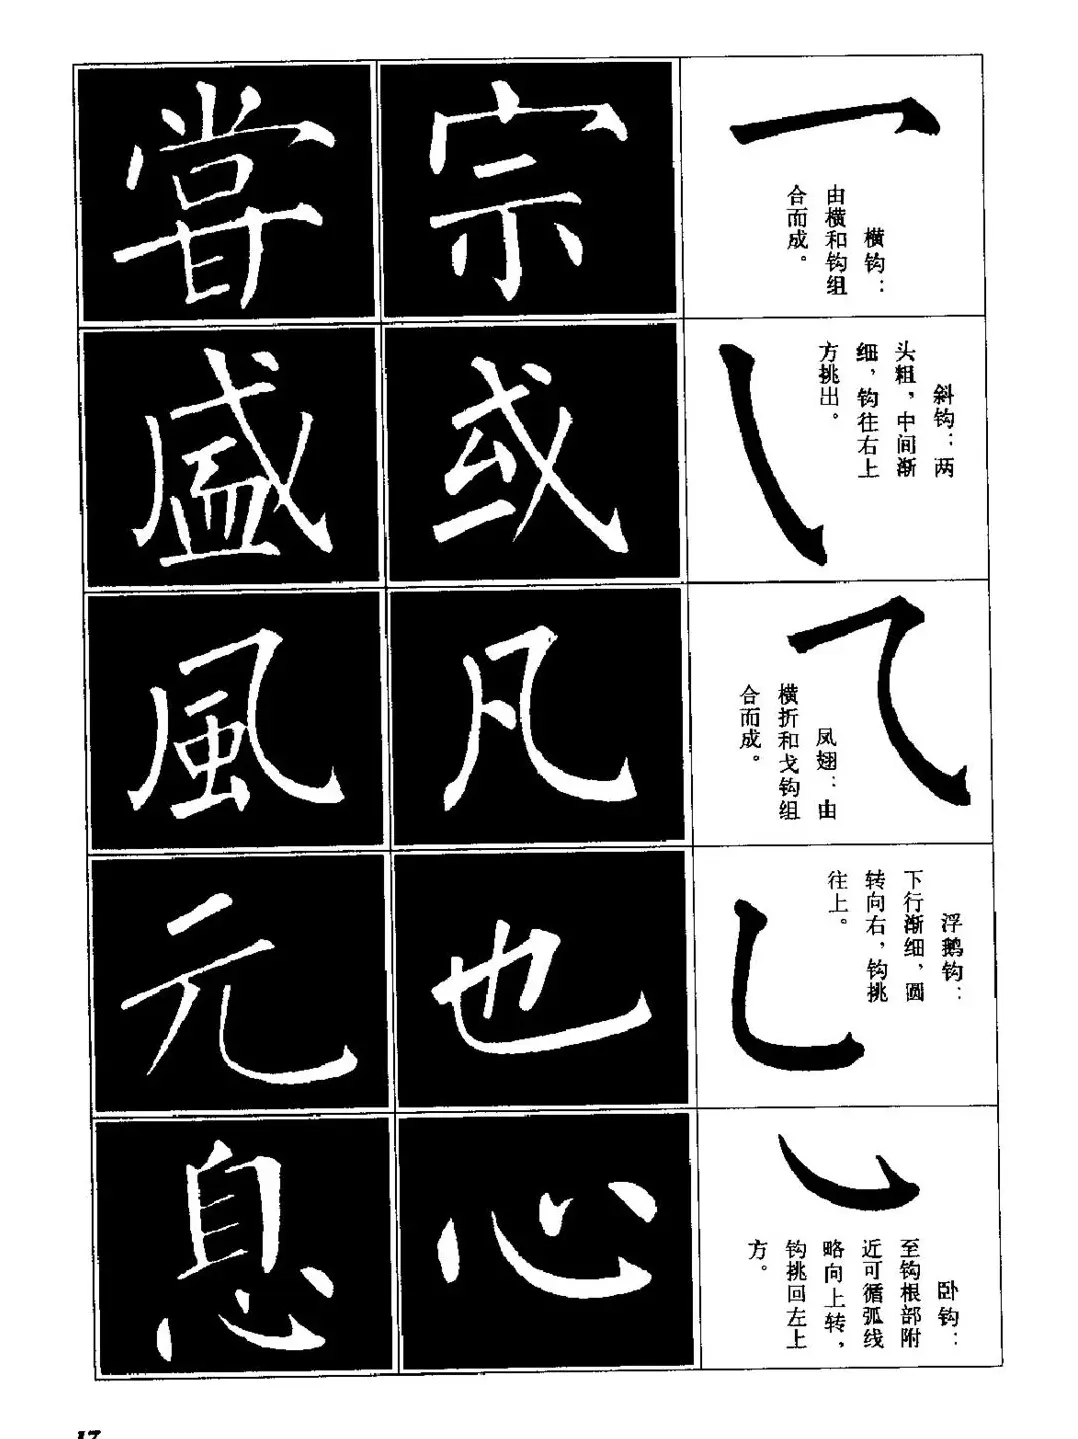 横钩：
由横和钩组
合而成。
宗
甞
斜钩：两
头粗，中间渐
细，钩往右上
方挑出。
或
盛
凤翅：由
横折和戈钩组
合而成。
凡
風
浮鹅钩：
下行渐细，圆
转向右，钩挑
往上。
也
元
卧钩：
至钩根部附
近可循弧线
略向上转，
钩挑回左上
方。
心
息
17